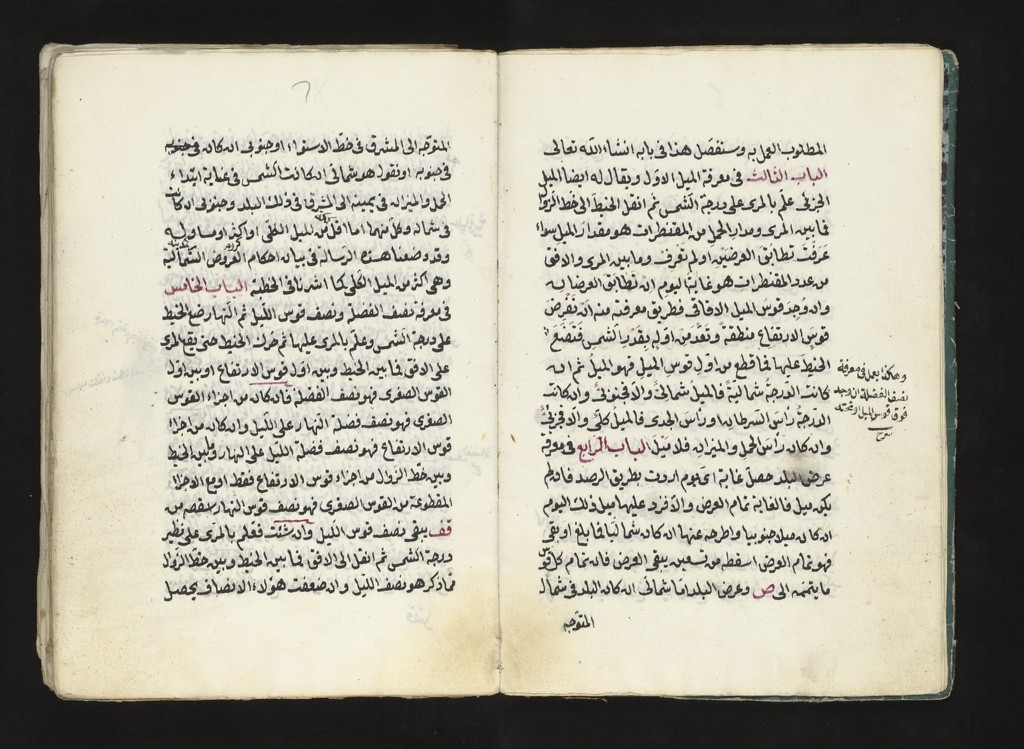 المطلوب العمل به وستفصل هذا في بابه انشاء الله تعالى
الباب الثالث في معرفة الميل الاول ويقال له ايضا الميل
الجزئي علم بالمرى على درجة الشمس ثم انقل الخيط الى خط الزوال
فما بين المرى ومدار الحمل من المقنطرات هو مقدار الميل سواء
عرفت تطابق العرضين او لم تعرف وما بين المرى والافق
من عدد المقنطرات هو غاية اليوم ان تطابق العرضا به
وان وجد قوس الميل الافاقي فطريق معرفته منه ان تفرض
قوس الارتفاع منطقة وتعد من اوله بقدر الشمس فتضع
الخيط عليها فما قطع من اول قوس الميل فهو الميل ثم ان
كانت الدرجة شمالية فالميل شمالي والا فجنوبي وان كانت
الدرجة رأس السرطان او رأس الجدى فالميل كلي والا فجزئي
وان كان رأس الحمل والميزان فلا ميل الباب الرابع في معرفة
عرض البلد حصل غاية اى يوم اردت بطريق الرصد فان لم
يكن ميل فالغاية تمام العرض والا فزد عليها ميل ذلك اليوم
ان كان ميلا جنوبيا واطرحه عنها ان كان شماليا فما بلغ او بقى
فهو تمام العرض اسقطه من تسعين يبقى العرض فان تمام كل قوس
ما يتممه الى ص وعرض البلد اما شمالي ان كان البلد في شمال
المتوجه
وهكذا يعمل في معرفة
نصف الفضلة ان وجد
فوق قوس الميل
المتوجه الى المشرق في خط الاستواء او جنوبي ان كان في جنوبه
في جنوبه او نقول هو شمالي ان كانت الشمس في غاية ابتداء
الحمل والميزان في يمينه الى المشرق في ذلك البلد وجنوبي ان كانت
في شماله وكل منهما اما اقل من الميل الكلي او اكثر او مساو له
وقد وضعنا هذه الرسالة في بيان احكام العروض الشمالية
وهى اكثر من الميل الكلى كما اشرنا في الخطبة الباب الخامس
في معرفة نصف الفضلة ونصف قوس الليل ثم النهار ضع الخيط
على درجة الشمس وعلم بالمرى عليها ثم حرك الخيط حتى يقع المرى
على الافق فما بين الخيط وبين اول قوس الارتفاع او بين اول
القوس الصغرى فهو نصف الفضلة فان كان من اجزاء القوس
الصغرى فهو نصف فضلة النهار على الليل وان كان من اجزاء
قوس الارتفاع فهو نصف فضلة الليل على النهار وما بين الخيط
وبين خط الزوال من اجزاء قوس الارتفاع فقط او مع الاجزاء
المقطوعة من القوس الصغرى فهو نصف قوس النهار انقصه من
قف يبقى نصف قوس الليل وان شئت فعلم بالمرى على نظير
درجة الشمس ثم انقل الى الافق فما بين الخيط وبين خط الزوال
مما ذكر هو نصف الليل وان ضعفت هؤلاء الانصاف يحصل